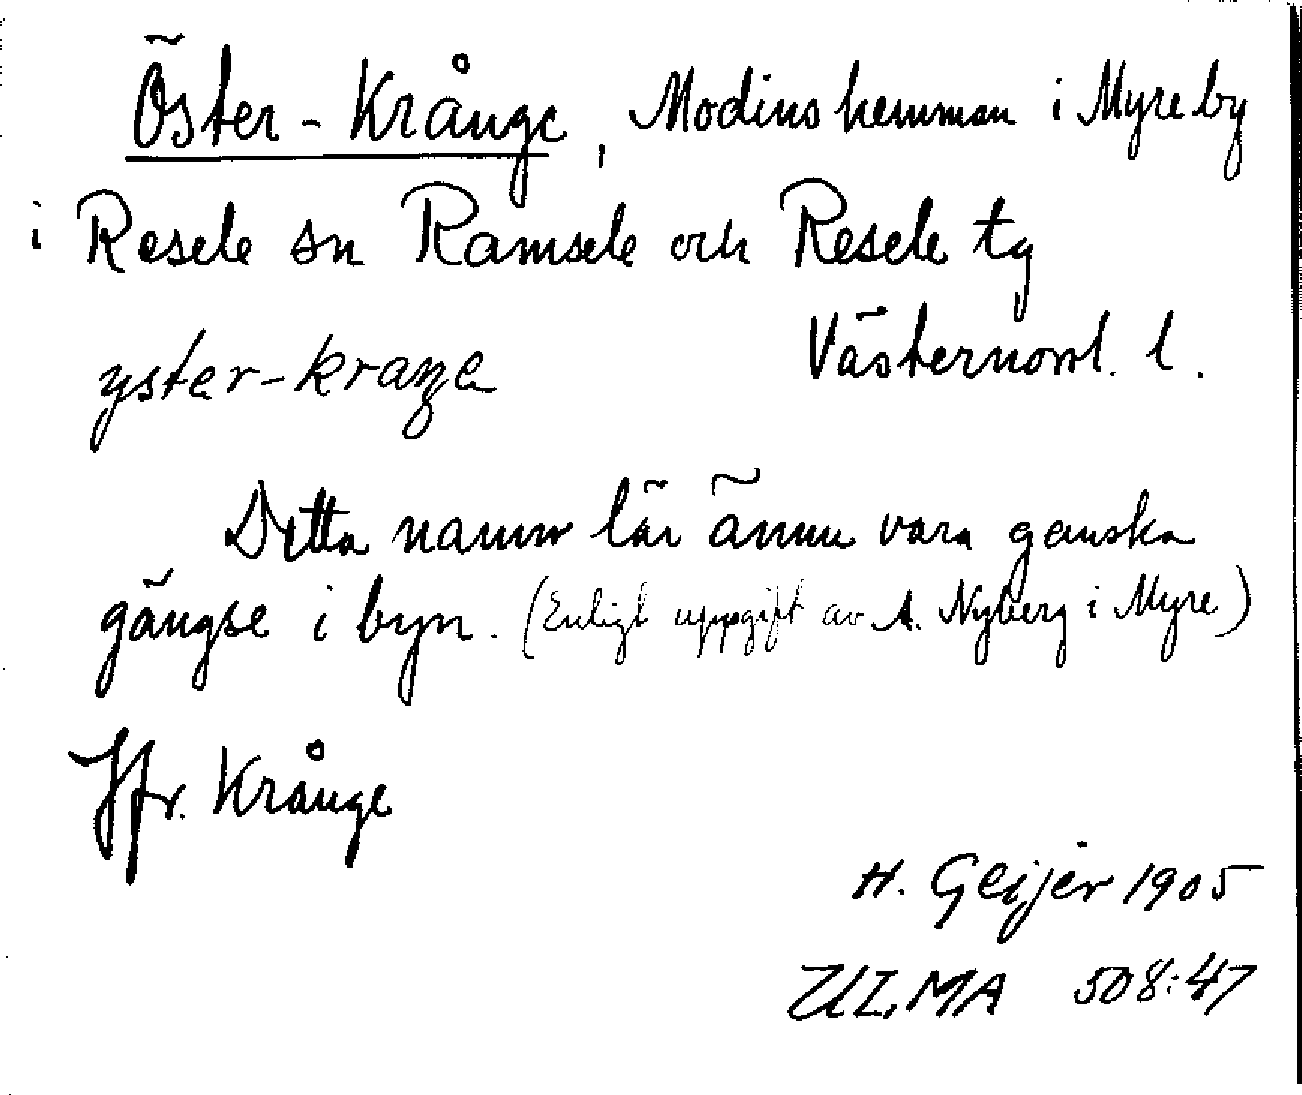 Öster-Krånge, Modins hemman i Myre by
i Resele sn Ramsele och Resele tg
Västernorrl. l.
yster-kraŋe
Detta namn lär ännu vara ganska
gängse i byn. (Enligt uppgift av A. Nyberg i Myre)
Jfr. Krånge
H. Geijer 1905
ULMA 508:47